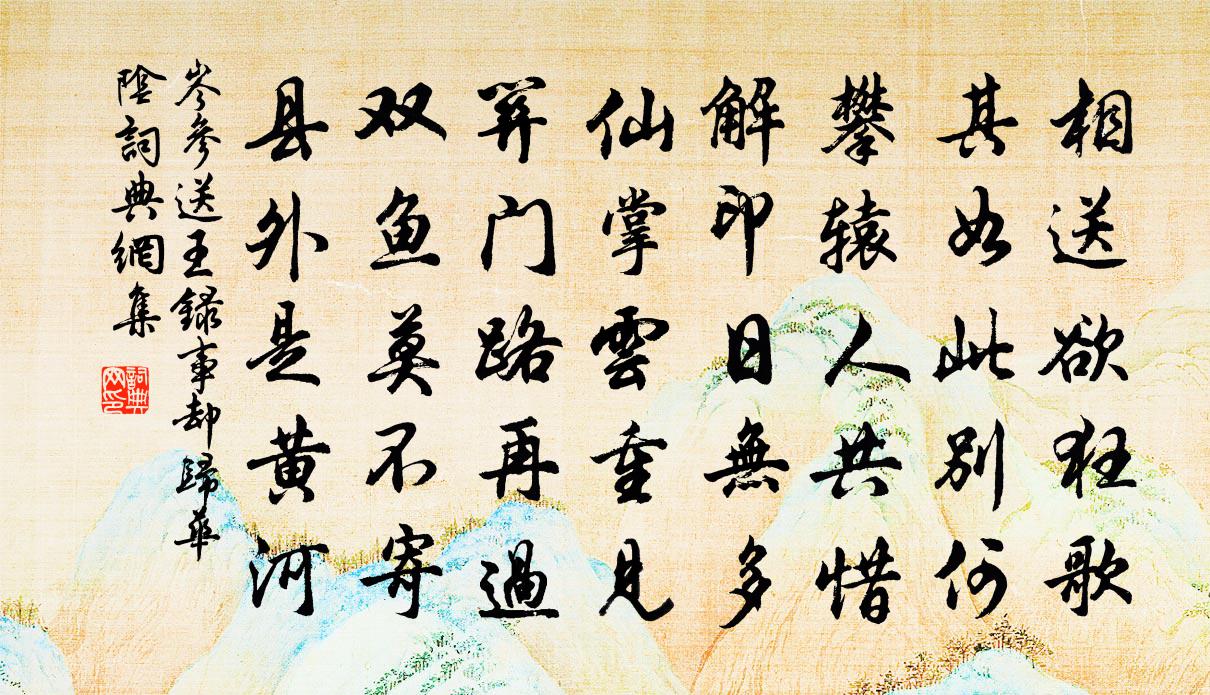 相送欲狂歌
其如此别何
攀辕人共惜
解印日無多
仙掌雲重見
関门路再過
双鱼莫不寄
县外是黄河
岑参送王録事却歸華
陰詞典網集
詞典网印